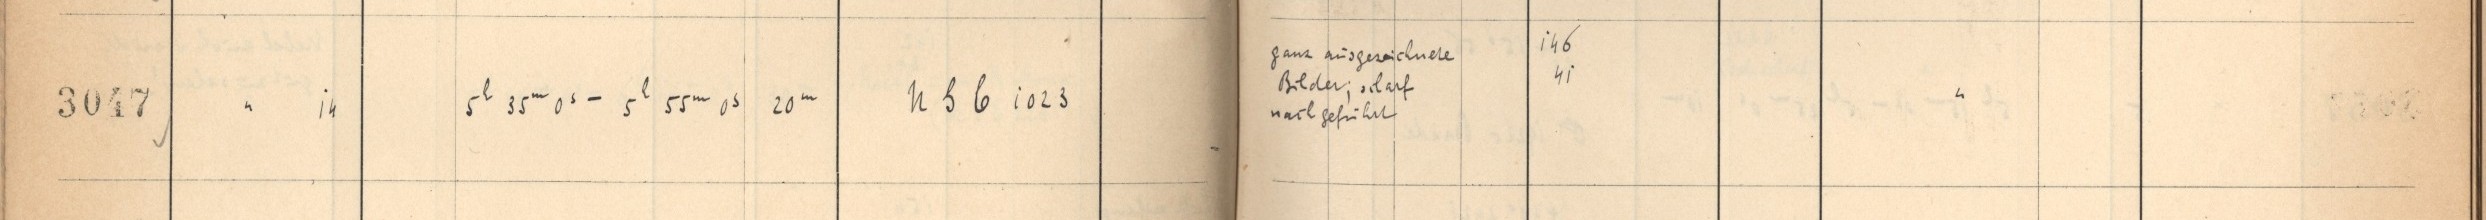 3047 " 14 5h 35m 0s – 5h 55m 0s 20m N G C 1023
ganz ausgezeichnete 146
Bilder; scharf 41
nachgeführt "